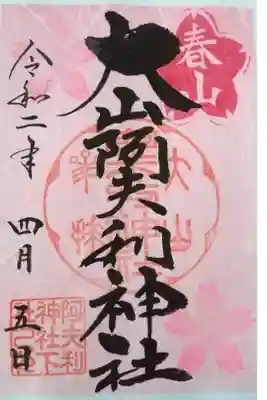 春山
大山阿夫利神社
令和二年
四月
五日
阿夫利
神社下